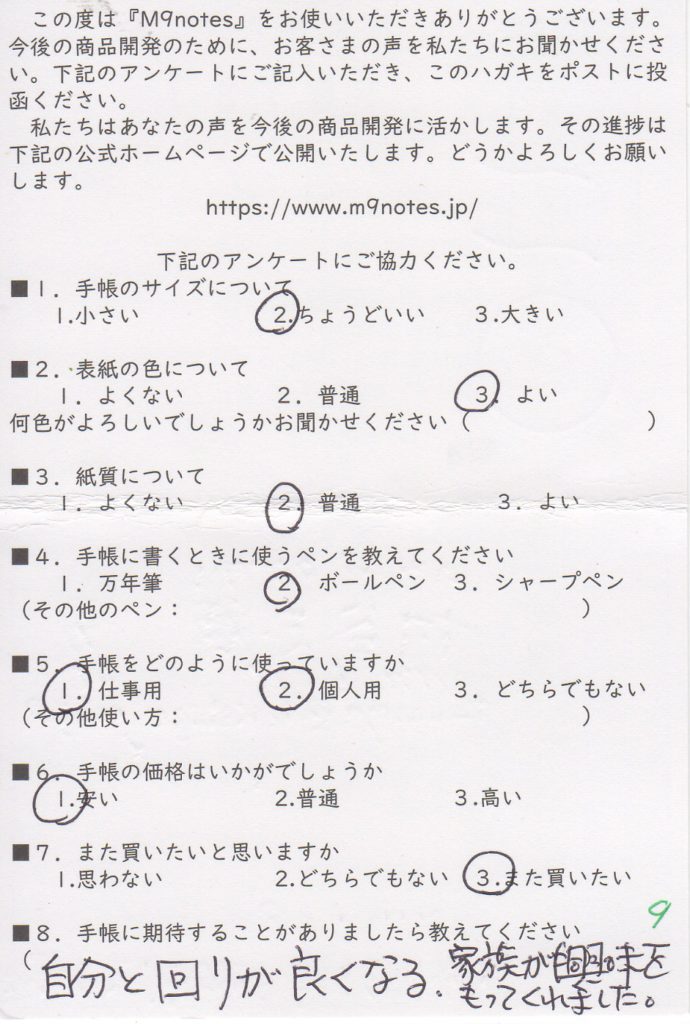 この度は『M9notes』をお使いいただきありがとうございます。
今後の商品開発のために、お客さまの声を私たちにお聞かせくださ
い。下記のアンケートにご記入いただき、このハガキをポストに投
函ください。
私たちはあなたの声を今後の商品開発に活かします。その進捗は
下記の公式ホームページで公開いたします。どうかよろしくお願い
します。
https://www.m9notes.jp/
下記のアンケートにご協力ください。
■1. 手帳のサイズについて
1.小さい 2.ちょうどいい 3.大きい
■2. 表紙の色について
1. よくない 2. 普通 3. よい
何色がよろしいでしょうかお聞かせください（ ）
■3. 紙質について
1. よくない 2. 普通 3. よい
■4. 手帳に書くときに使うペンを教えてください
1. 万年筆 2. ボールペン 3. シャープペン
（その他のペン： ）
■5. 手帳をどのように使っていますか
1. 仕事用 2. 個人用 3. どちらでもない
（その他使い方： ）
■6. 手帳の価格はいかがでしょうか
1.安い 2.普通 3.高い
■7. また買いたいと思いますか
1.思わない 2.どちらでもない 3.また買いたい
9
■8. 手帳に期待することがありましたら教えてください
（自分と回りが良くなる. 家族が興味を
もってくれました。